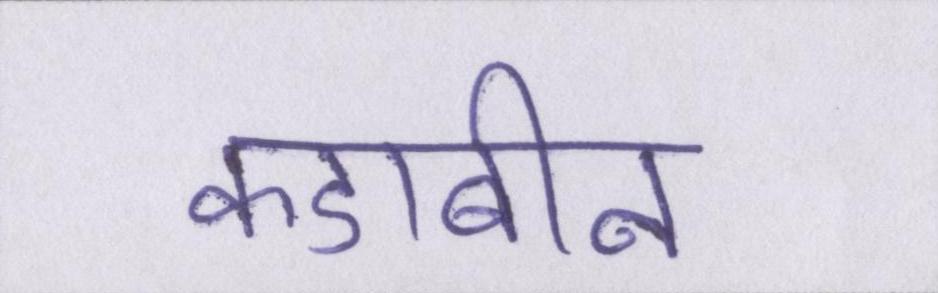 कडाबीन